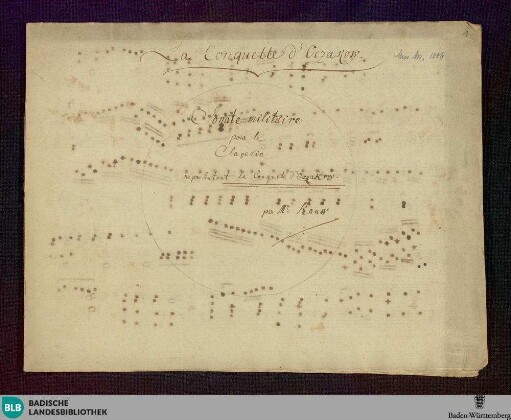 La Conquette d'Oczakow.
Mus. Hs. 1005
Sonate militaire
pour le
Clavecin
representant la Conquette d'Oczakow.
par Mr. Kauer
BLB BADISCHE
LANDESBIBLIOTHEK
Baden-Württemberg